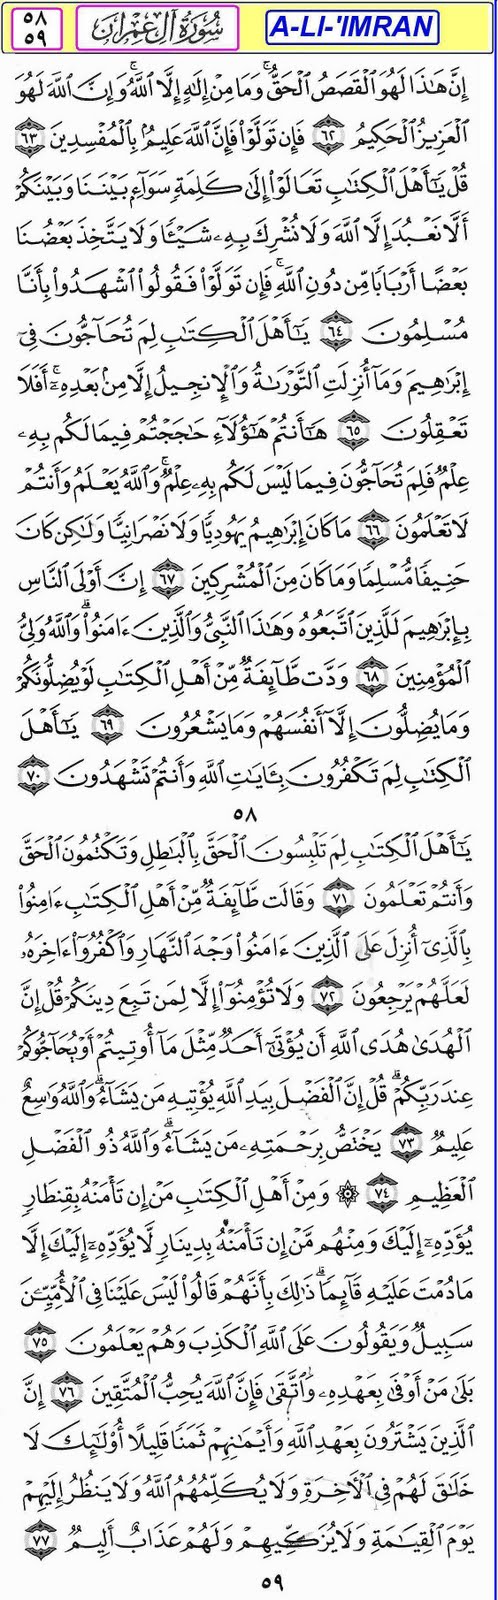 ٥٨
٥٩
سُورَةُ آلِ عِمْرَان
A-LI-'IMRAN
إِنَّ هَٰذَا لَهُوَ ٱلْقَصَصُ ٱلْحَقُّ ۚ وَمَا مِنْ إِلَٰهٍ إِلَّا ٱللَّهُ ۚ وَإِنَّ ٱللَّهَ لَهُوَ
ٱلْعَزِيزُ ٱلْحَكِيمُ ٦٢ فَإِن تَوَلَّوْا۟ فَإِنَّ ٱللَّهَ عَلِيمٌۢ بِٱلْمُفْسِدِينَ ٦٣
قُلْ يَٰٓأَهْلَ ٱلْكِتَٰبِ تَعَالَوْا۟ إِلَىٰ كَلِمَةٍ سَوَآءٍۭ بَيْنَنَا وَبَيْنَكُمْ
أَلَّا نَعْبُدَ إِلَّا ٱللَّهَ وَلَا نُشْرِكَ بِهِۦ شَيْـًٔا وَلَا يَتَّخِذَ بَعْضُنَا
بَعْضًا أَرْبَابًا مِّن دُونِ ٱللَّهِ ۚ فَإِن تَوَلَّوْا۟ فَقُولُوا۟ ٱشْهَدُوا۟ بِأَنَّا
مُسْلِمُونَ ٦٤ يَٰٓأَهْلَ ٱلْكِتَٰبِ لِمَ تُحَآجُّونَ فِىٓ
إِبْرَٰهِيمَ وَمَآ أُنزِلَتِ ٱلتَّوْرَىٰةُ وَٱلْإِنجِيلُ إِلَّا مِنۢ بَعْدِهِۦٓ ۚ أَفَلَا
تَعْقِلُونَ ٦٥ هَٰٓأَنتُمْ هَٰٓؤُلَآءِ حَٰجَجْتُمْ فِيمَا لَكُم بِهِۦ
عِلْمٌ فَلِمَ تُحَآجُّونَ فِيمَا لَيْسَ لَكُم بِهِۦ عِلْمٌ ۚ وَٱللَّهُ يَعْلَمُ وَأَنتُمْ
لَا تَعْلَمُونَ ٦٦ مَا كَانَ إِبْرَٰهِيمُ يَهُودِيًّا وَلَا نَصْرَانِيًّا وَلَٰكِن كَانَ
حَنِيفًا مُّسْلِمًا وَمَا كَانَ مِنَ ٱلْمُشْرِكِينَ ٦٧ إِنَّ أَوْلَى ٱلنَّاسِ
بِإِبْرَٰهِيمَ لَلَّذِينَ ٱتَّبَعُوهُ وَهَٰذَا ٱلنَّبِىُّ وَٱلَّذِينَ ءَامَنُوا۟ ۗ وَٱللَّهُ وَلِىُّ
ٱلْمُؤْمِنِينَ ٦٨ وَدَّت طَّآئِفَةٌ مِّنْ أَهْلِ ٱلْكِتَٰبِ لَوْ يُضِلُّونَكُمْ
وَمَا يُضِلُّونَ إِلَّآ أَنفُسَهُمْ وَمَا يَشْعُرُونَ ٦٩ يَٰٓأَهْلَ
ٱلْكِتَٰبِ لِمَ تَكْفُرُونَ بِـَٔايَٰتِ ٱللَّهِ وَأَنتُمْ تَشْهَدُونَ ٧٠
٥٨
يَٰٓأَهْلَ ٱلْكِتَٰبِ لِمَ تَلْبِسُونَ ٱلْحَقَّ بِٱلْبَٰطِلِ وَتَكْتُمُونَ ٱلْحَقَّ
وَأَنتُمْ تَعْلَمُونَ ٧١ وَقَالَت طَّآئِفَةٌ مِّنْ أَهْلِ ٱلْكِتَٰبِ ءَامِنُوا۟
بِٱلَّذِىٓ أُنزِلَ عَلَى ٱلَّذِينَ ءَامَنُوا۟ وَجْهَ ٱلنَّهَارِ وَٱكْفُرُوٓا۟ ءَاخِرَهُۥ
لَعَلَّهُمْ يَرْجِعُونَ ٧٢ وَلَا تُؤْمِنُوٓا۟ إِلَّا لِمَن تَبِعَ دِينَكُمْ قُلْ إِنَّ
ٱلْهُدَىٰ هُدَى ٱللَّهِ أَن يُؤْتَىٰٓ أَحَدٌ مِّثْلَ مَآ أُوتِيتُمْ أَوْ يُحَآجُّوكُمْ
عِندَ رَبِّكُمْ ۗ قُلْ إِنَّ ٱلْفَضْلَ بِيَدِ ٱللَّهِ يُؤْتِيهِ مَن يَشَآءُ ۗ وَٱللَّهُ وَٰسِعٌ
عَلِيمٌ ٧٣ يَخْتَصُّ بِرَحْمَتِهِۦ مَن يَشَآءُ ۗ وَٱللَّهُ ذُو ٱلْفَضْلِ
ٱلْعَظِيمِ ٧٤ ۞ وَمِنْ أَهْلِ ٱلْكِتَٰبِ مَنْ إِن تَأْمَنْهُ بِقِنطَارٍ
يُؤَدِّهِۦٓ إِلَيْكَ وَمِنْهُم مَّنْ إِن تَأْمَنْهُ بِدِينَارٍ لَّا يُؤَدِّهِۦٓ إِلَيْكَ إِلَّا
مَا دُمْتَ عَلَيْهِ قَآئِمًا ۗ ذَٰلِكَ بِأَنَّهُمْ قَالُوا۟ لَيْسَ عَلَيْنَا فِى ٱلْأُمِّيِّـۧنَ
سَبِيلٌ وَيَقُولُونَ عَلَى ٱللَّهِ ٱلْكَذِبَ وَهُمْ يَعْلَمُونَ ٧٥
بَلَىٰ مَنْ أَوْفَىٰ بِعَهْدِهِۦ وَٱتَّقَىٰ فَإِنَّ ٱللَّهَ يُحِبُّ ٱلْمُتَّقِينَ ٧٦ إِنَّ
ٱلَّذِينَ يَشْتَرُونَ بِعَهْدِ ٱللَّهِ وَأَيْمَٰنِهِمْ ثَمَنًا قَلِيلًا أُو۟لَٰٓئِكَ لَا
خَلَٰقَ لَهُمْ فِى ٱلْءَاخِرَةِ وَلَا يُكَلِّمُهُمُ ٱللَّهُ وَلَا يَنظُرُ إِلَيْهِمْ
يَوْمَ ٱلْقِيَٰمَةِ وَلَا يُزَكِّيهِمْ وَلَهُمْ عَذَابٌ أَلِيمٌ ٧٧
٥٩